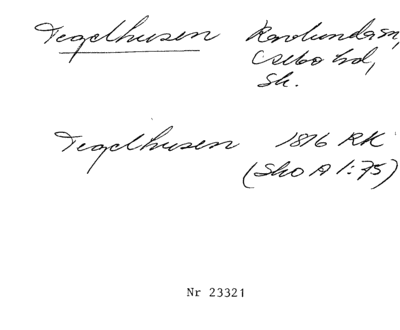 Tegelhusen Ravlundasn,
Csebo hd,
Sk.
Tegelhusen 1816 RK
(Sko A 1:75)
Nr 23321